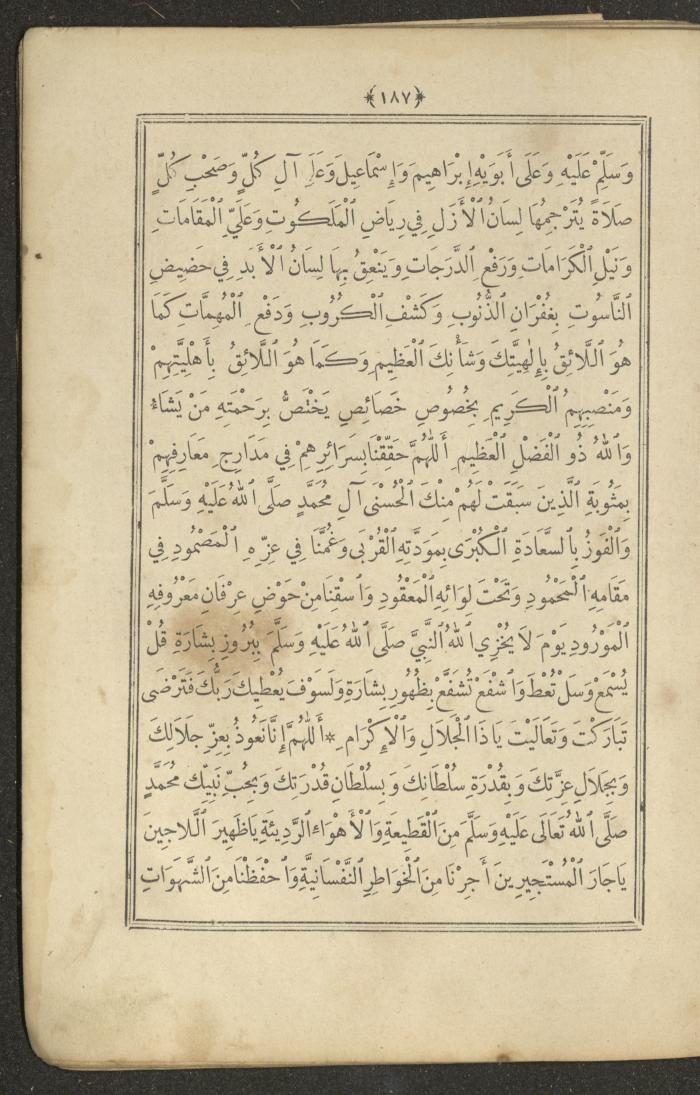 ﴿١٨٧﴾
وَسَلِّمْ عَلَيْهِ وَعَلَى أَبَوَيْهِ إِبْرَاهِيمَ وَإِسْمَاعِيلَ وَعَلَى آلِ كُلٍّ وَصَحْبِ كُلٍّ
صَلَاةً يُتَرْجِمُهَا لِسَانُ الْأَزَلِ فِي رِيَاضِ الْمَلَكُوتِ وَعَلِيِّ الْمَقَامَاتِ
وَنَيْلِ الْكَرَامَاتِ وَرَفْعِ الدَّرَجَاتِ وَيَنْعِقُ بِهَا لِسَانُ الْأَبَدِ فِي حَضِيضِ
النَّاسُوتِ بِغُفْرَانِ الذُّنُوبِ وَكَشْفِ الْكُرُوبِ وَدَفْعِ الْمُهِمَّاتِ كَمَا
هُوَ اللَّائِقُ بِإِلٰهِيَّتِكَ وَشَأْنِكَ الْعَظِيمِ وَكَمَا هُوَ اللَّائِقُ بِأَهْلِيَّتِهِمْ
وَمَنْصِبِهِمُ الْكَرِيمِ بِخُصُوصِ خَصَائِصِ يَخْتَصُّ بِرَحْمَتِهِ مَنْ يَشَاءُ
وَاللهُ ذُو الْفَضْلِ الْعَظِيمِ أَللّٰهُمَّ حَقِّقْنَا بِسَرَائِرِهِمْ فِي مَدَارِجِ مَعَارِفِهِمْ
بِمَثُوبَةِ الَّذِينَ سَبَقَتْ لَهُمْ مِنْكَ الْحُسْنَى آلِ مُحَمَّدٍ صَلَّى اللهُ عَلَيْهِ وَسَلَّمَ
وَالْفَوْزُ بِالسَّعَادَةِ الْكُبْرَى بِمَوَدَّتِهِ الْقُرْبَى وَغُمَّنَا فِي عِزِّهِ الْمَصْمُودِ فِي
مَقَامِهِ الْمَحْمُودِ وَتَحْتَ لِوَائِهِ الْمَعْقُودِ وَاسْقِنَا مِنْ حَوْضِ عِرْفَانِ مَعْرُوفِهِ
الْمَوْرُودِ يَوْمَ لَا يُخْزِي اللهُ النَّبِيَّ صَلَّى اللهُ عَلَيْهِ وَسَلَّمَ بِبُرُوزِ بِشَارَةِ قُلْ
يُسْمَعْ وَسَلْ تُعْطَ وَاشْفَعْ تُشَفَّعْ بِظُهُورِ بِشَارَةِ وَلَسَوْفَ يُعْطِيكَ رَبُّكَ فَتَرْضَى
تَبَارَكْتَ وَتَعَالَيْتَ يَا ذَا الْجَلَالِ وَالْإِكْرَامِ * أَللّٰهُمَّ إِنَّا نَعُوذُ بِعِزِّ جَلَالِكَ
وَبِجَلَالِ عِزَّتِكَ وَبِقُدْرَةِ سُلْطَانِكَ وَبِسُلْطَانِ قُدْرَتِكَ وَبِحُبِّ نَبِيِّكَ مُحَمَّدٍ
صَلَّى اللهُ تَعَالَى عَلَيْهِ وَسَلَّمَ مِنَ الْقَطِيعَةِ وَالْأَهْوَاءِ الرَّدِيئَةِ يَا ظَهِيرَ اللَّاجِينَ
يَا جَارَ الْمُسْتَجِيرِينَ أَجِرْنَا مِنَ الْخَوَاطِرِ النَّفْسَانِيَّةِ وَاحْفَظْنَا مِنَ الشَّهَوَاتِ